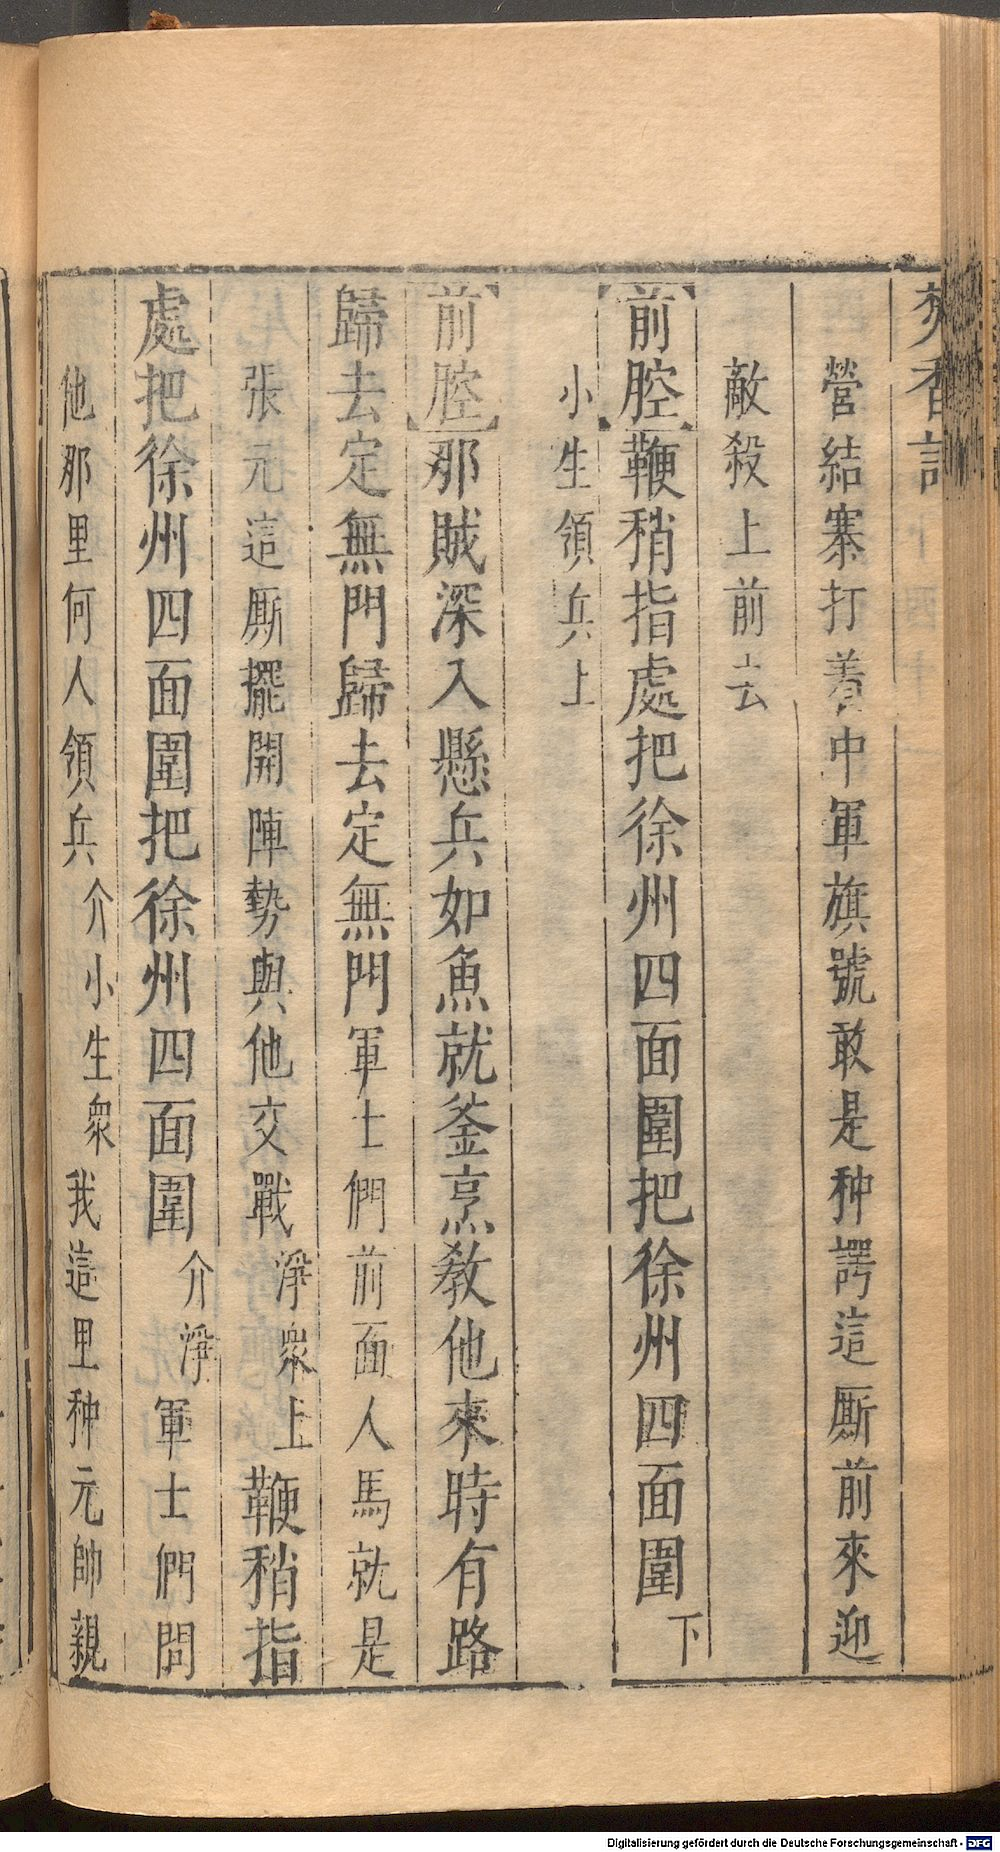 焚香記
營結寨打着中軍旗號敢是种諤這厮前來迎
敵殺上前去
前腔鞭稍指處把徐州四面圍把徐州四面圍下
小生領兵上
前腔那賊深入懸兵如魚就釜烹教他來時有路
歸去定無門歸去定無門軍士們前面人馬就是
張元這厮擺開陣勢與他交戰淨衆上鞭稍指
處把徐州四面圍把徐州四面圍介淨軍士們問
他那里何人領兵介小生衆我這里种元帥親
Digitalisierung gefördert durch die Deutsche Forschungsgemeinschaft - DFG